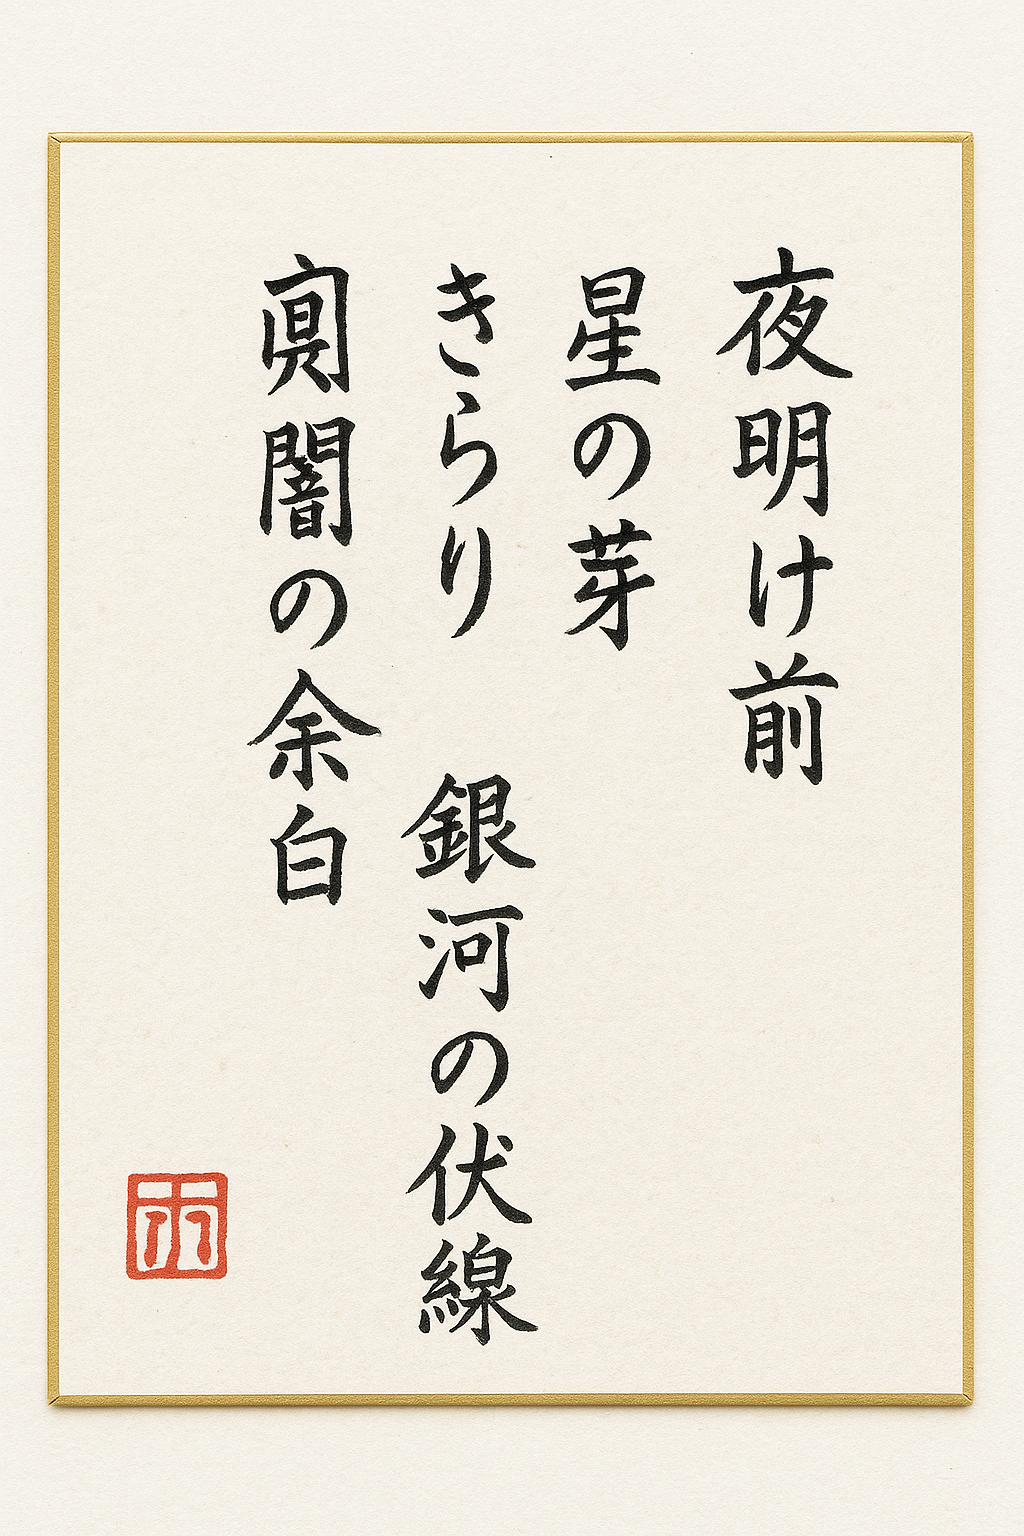 夜明け前
星の芽
きらり 銀河の伏線
闇の余白